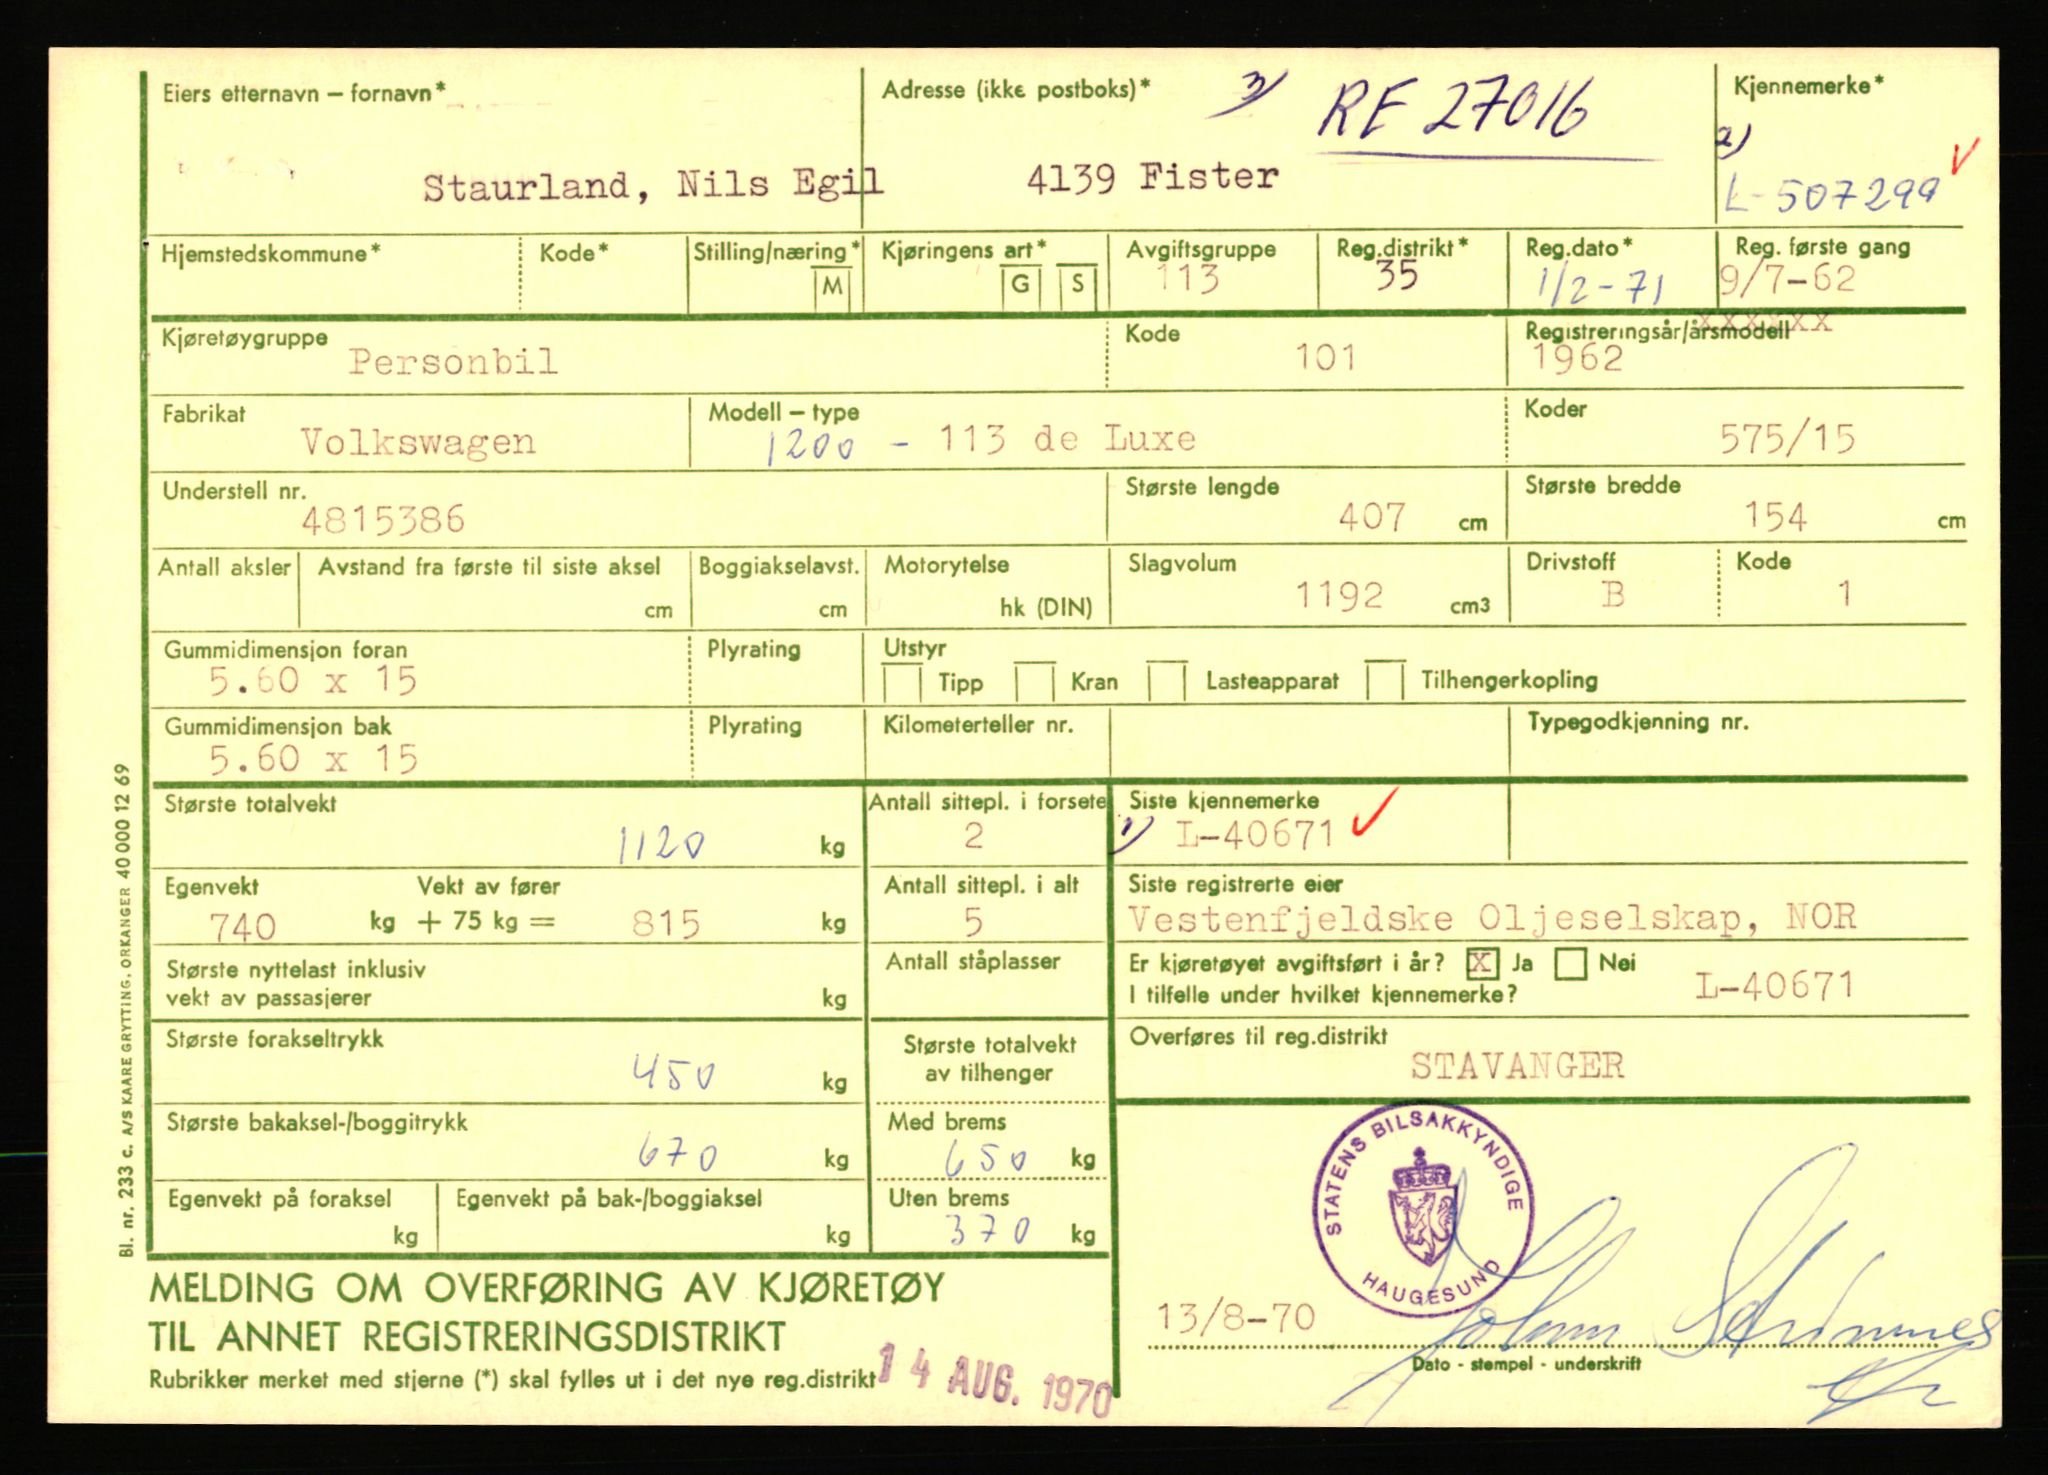 Eiers etternavn – fornavn*
Adresse (ikke postboks)*
3) RE 27016
Kjennemerke*
2)
L-507299
Staurland, Nils Egil
4139 Fister
Hjemstedskommune*
Kode*
Stilling/næring*
M
Kjøringens art*
G
S
Avgiftsgruppe
113
Reg.distrikt*
35
Reg.dato*
1/2-71
Reg. første gang
9/7-62
Kjøretøygruppe
Personbil
Kode
101
xxxxxx
Registreringsår/årsmodell
1962
Fabrikat
Volkswagen
Modell – type
1200 - 113 de Luxe
Koder
575/15
Understell nr.
4815386
Største lengde
407 cm
Største bredde
154 cm
Antall aksler
Avstand fra første til siste aksel
cm
Boggiakselavst.
cm
Motorytelse
hk (DIN)
Slagvolum
1192 cm3
Drivstoff
B
Kode
1
Gummidimensjon foran
5.60 x 15
Plyrating
Utstyr
Tipp
Kran
Lasteapparat
Tilhengerkopling
Gummidimensjon bak
5.60 x 15
Plyrating
Kilometerteller nr.
Typegodkjenning nr.
Største totalvekt
1120 kg
Antall sittepl. i forsete
2
Siste kjennemerke
1) L-40671
Egenvekt
740 kg
Vekt av fører
+ 75 kg = 815 kg
Antall sittepl. i alt
5
Siste registrerte eier
Vestenfjeldske Oljeselskap, NOR
Største nyttelast inklusiv
vekt av passasjerer
kg
Antall ståplasser
Er kjøretøyet avgiftsført i år? X Ja Nei
I tilfelle under hvilket kjennemerke?
L-40671
Største forakseltrykk
450 kg
Største totalvekt
av tilhenger
Overføres til reg.distrikt
STAVANGER
Største bakaksel-/boggitrykk
670 kg
Med brems
650 kg
Egenvekt på foraksel
kg
Egenvekt på bak-/boggiaksel
kg
Uten brems
370 kg
STATENS BILSAKKYNDIGE
HAUGESUND
MELDING OM OVERFØRING AV KJØRETØY
TIL ANNET REGISTRERINGSDISTRIKT
Rubrikker merket med stjerne (*) skal fylles ut i det nye reg.distrikt
14 AUG. 1970
13/8-70
Dato - stempel - underskrift
Bl. nr. 233 c. A/S KAARE GRYTTING. ORKANGER 40 000 12 69